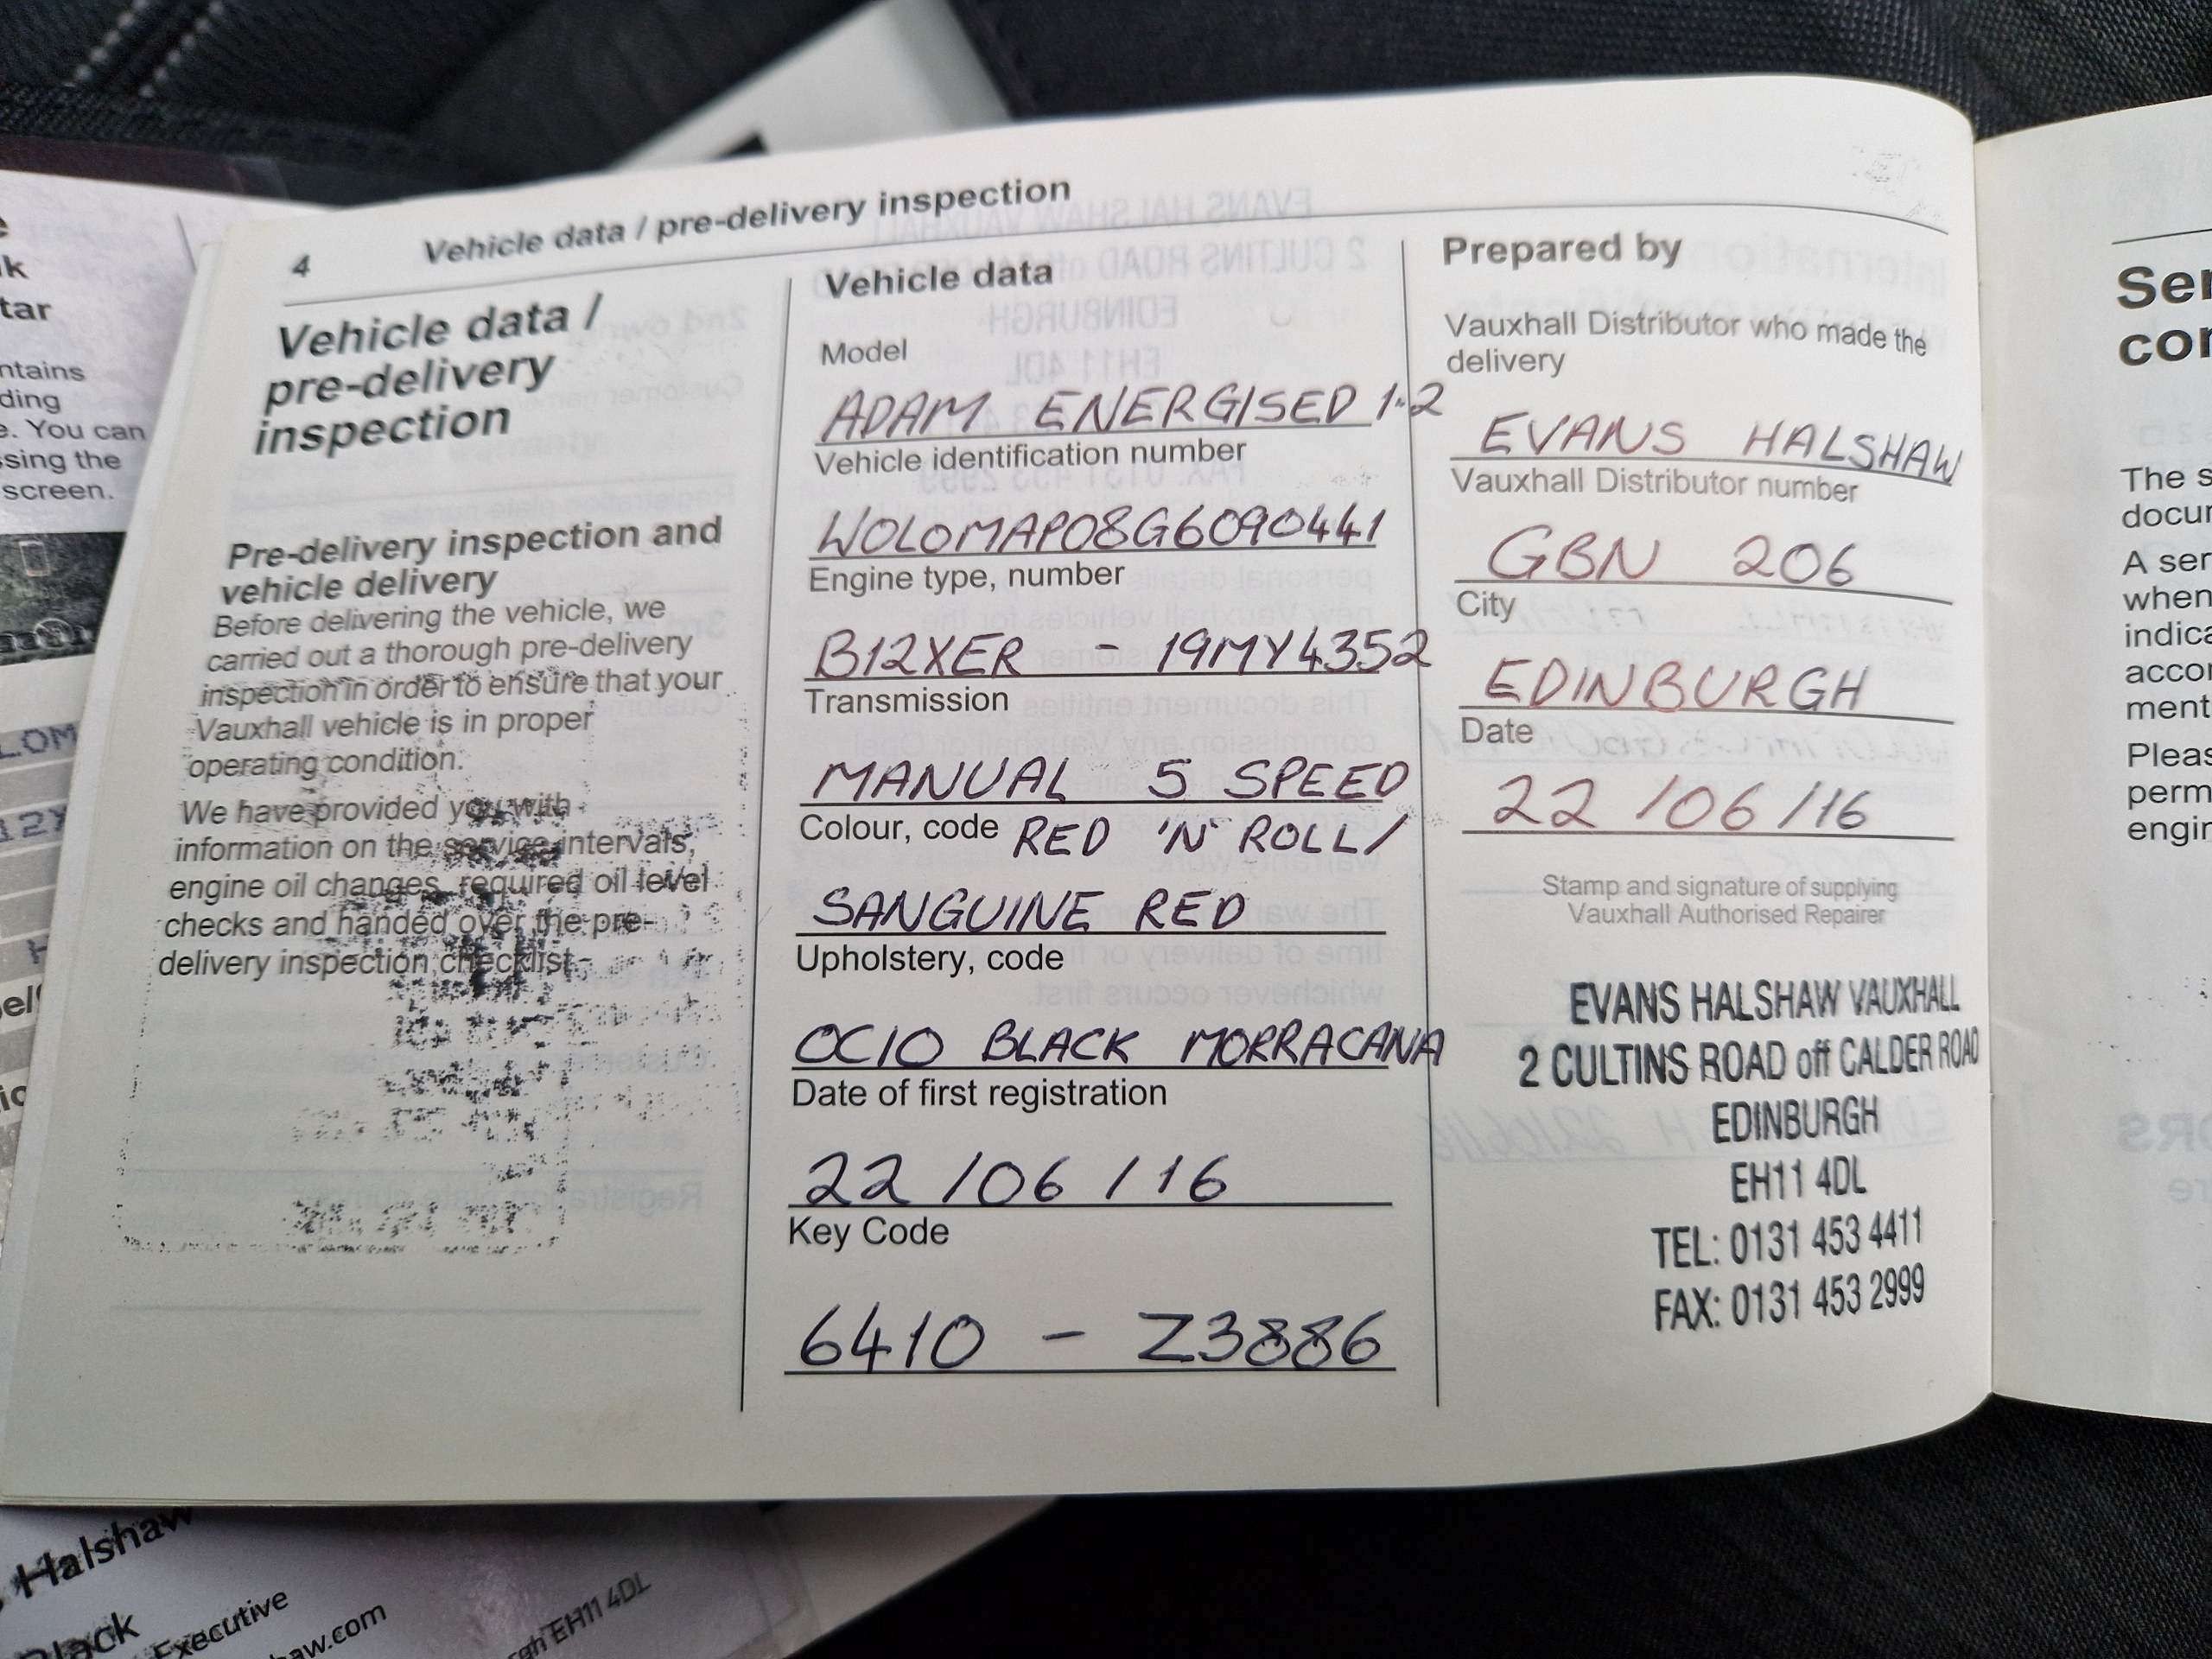 4
Vehicle data / pre-delivery inspection
Vehicle data /
pre-delivery
inspection
Pre-delivery inspection and
vehicle delivery
Before delivering the vehicle, we
carried out a thorough pre-delivery
inspection in order to ensure that your
Vauxhall vehicle is in proper
operating condition.
We have provided you with
information on the service intervals,
engine oil changes, required oil level
checks and handed over the pre-
delivery inspection checklist.
Vehicle data
Model
ADAM ENERGISED 1.2
Vehicle identification number
WOLOMAP08G6090441
Engine type, number
B12XER - 19MY4352
Transmission
MANUAL 5 SPEED
Colour, code RED 'N' ROLL/
SANGUINE RED
Upholstery, code
OC10 BLACK MORRACANA
Date of first registration
22/06/16
Key Code
6410 - Z3886
Prepared by
Vauxhall Distributor who made the
delivery
EVANS HALSHAW
Vauxhall Distributor number
GBN 206
City
EDINBURGH
Date
22/06/16
Stamp and signature of supplying
Vauxhall Authorised Repairer
EVANS HALSHAW VAUXHALL
2 CULTINS ROAD off CALDER ROAD
EDINBURGH
EH11 4DL
TEL: 0131 453 4411
FAX: 0131 453 2999
tar
You can
the
screen.
The
A
when
Halshaw
Black
Executive
EH11 4DL